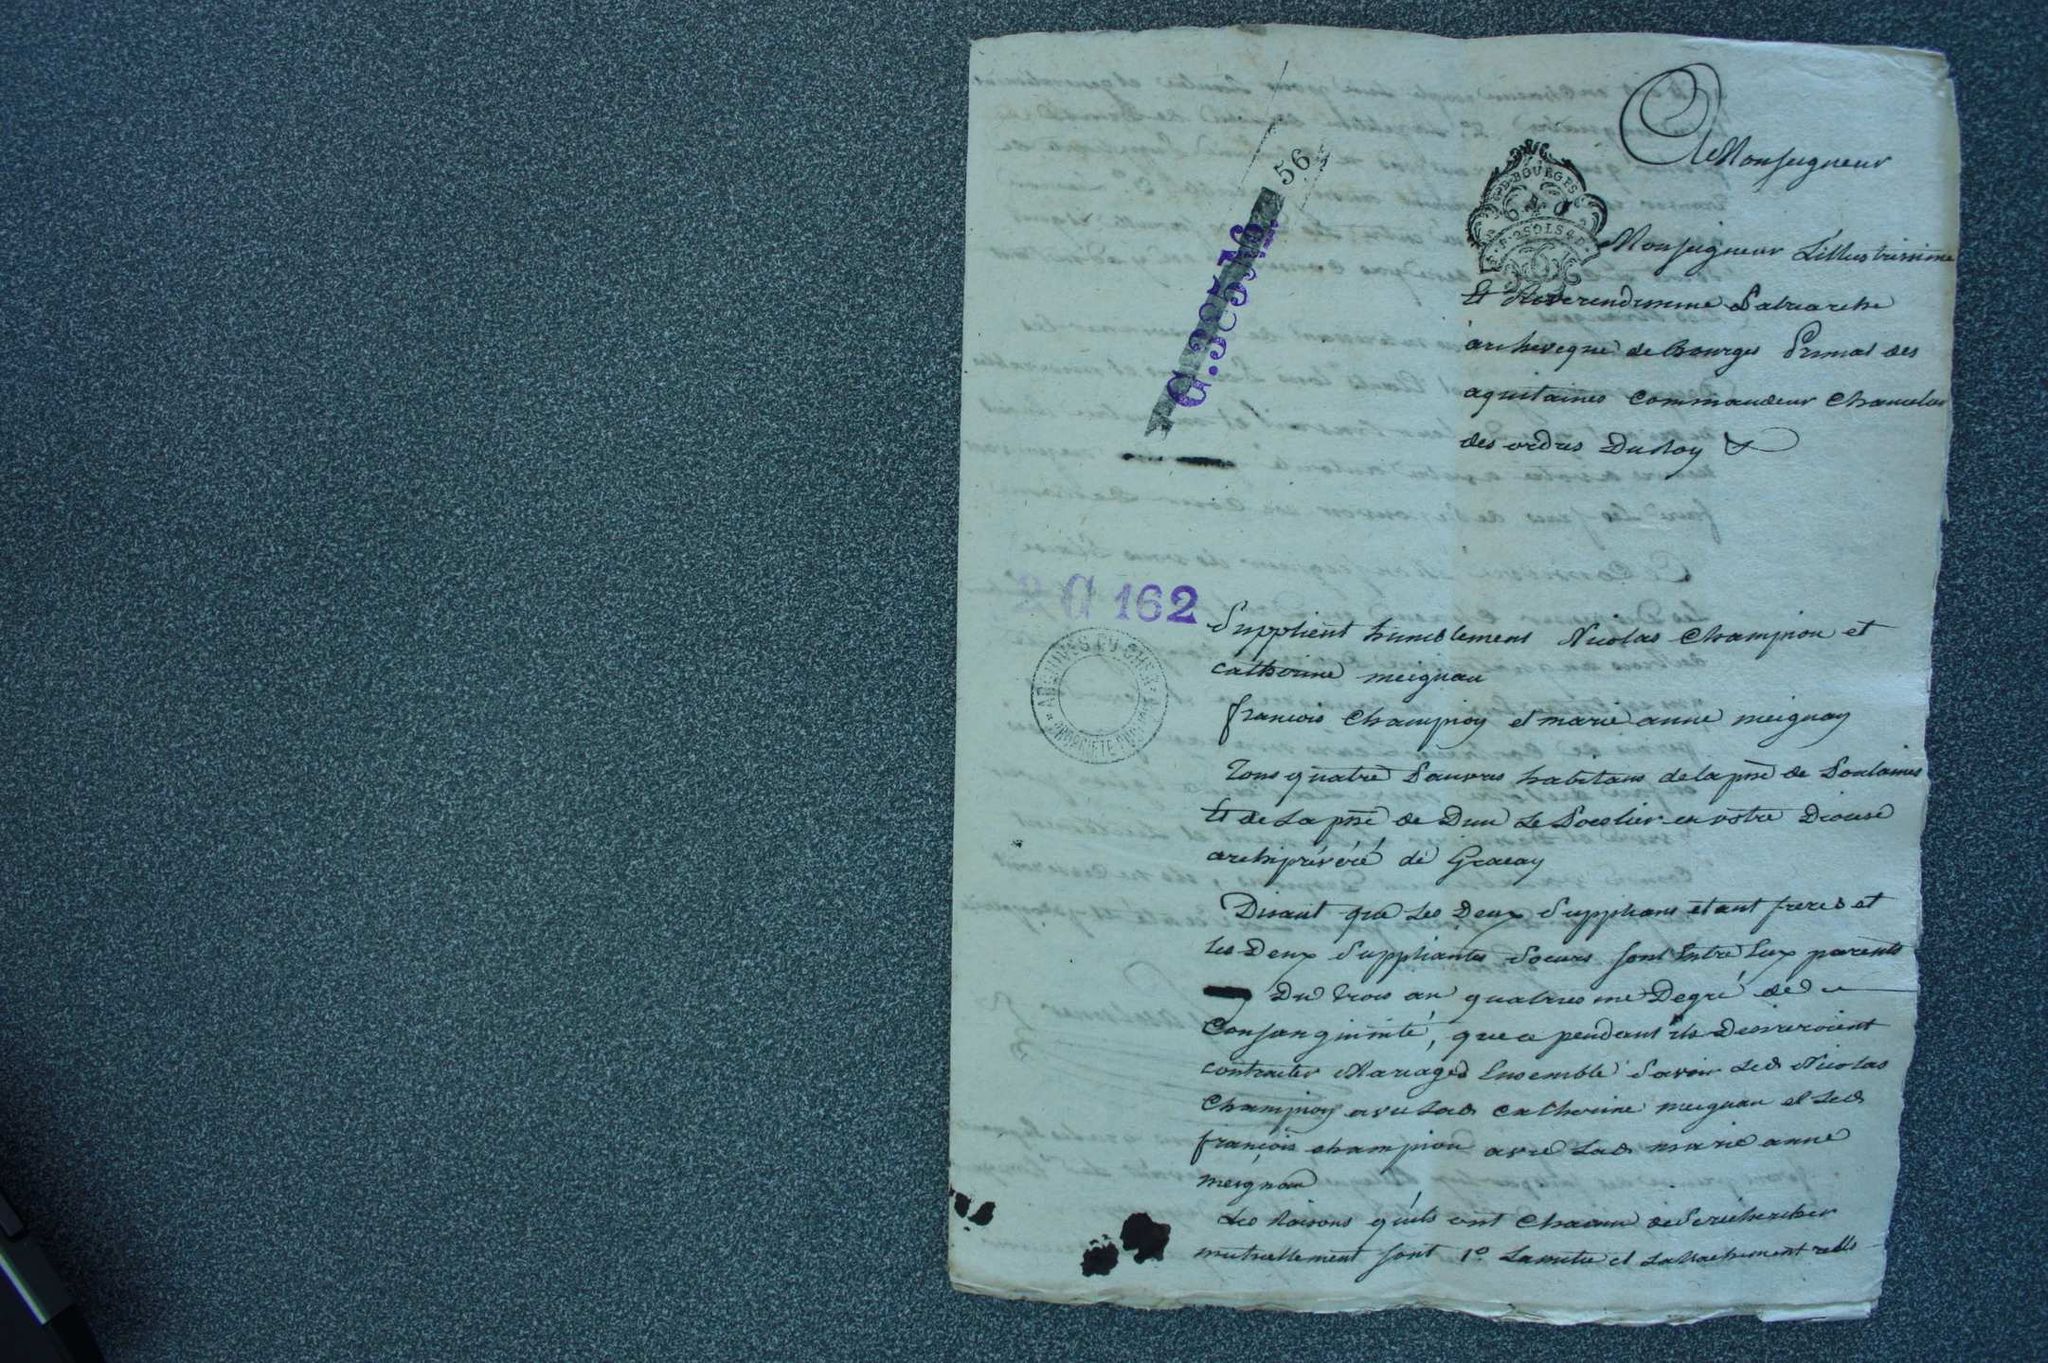 A Monseigneur
56
G. DE BOURGES
2 SOLS 4 D
G.385 76
Monseigneur Lillustrissime
Et Reverendissime Patriarche
archeveque de Bourges Primat des
aquitaines Commandeur Chancelier
des ordres Du Roy &
2 G 162
ARCHIVES DU CHER
PROPRIETE PUBLIQUE
Supplient humblement Nicolas Champion et
catherine meignan
francois Champion et marie anne meignan
Tous quatre Pauvres habitans de la psse de Poulaines
Et de La psse de Dun Le Poeslier en votre Diocese
archiprétré de Gracay
Disant que Les Deux Supplians etant freres et
les Deux Suppliantes Soeurs sont Entre Eux parents
Du trois au quatriesme Degré de
Consanguinité, que cependant ils Desireroient
contracter Mariages Ensemble Savoir Led Nicolas
Champion avec Lad Catherine meignan et Led
françois champion avec Lad marie anne
meignan
Les Raisons quils ont Chacun de Se rechercher
mutuellement sont 1º Lamitié et Lattachement reels